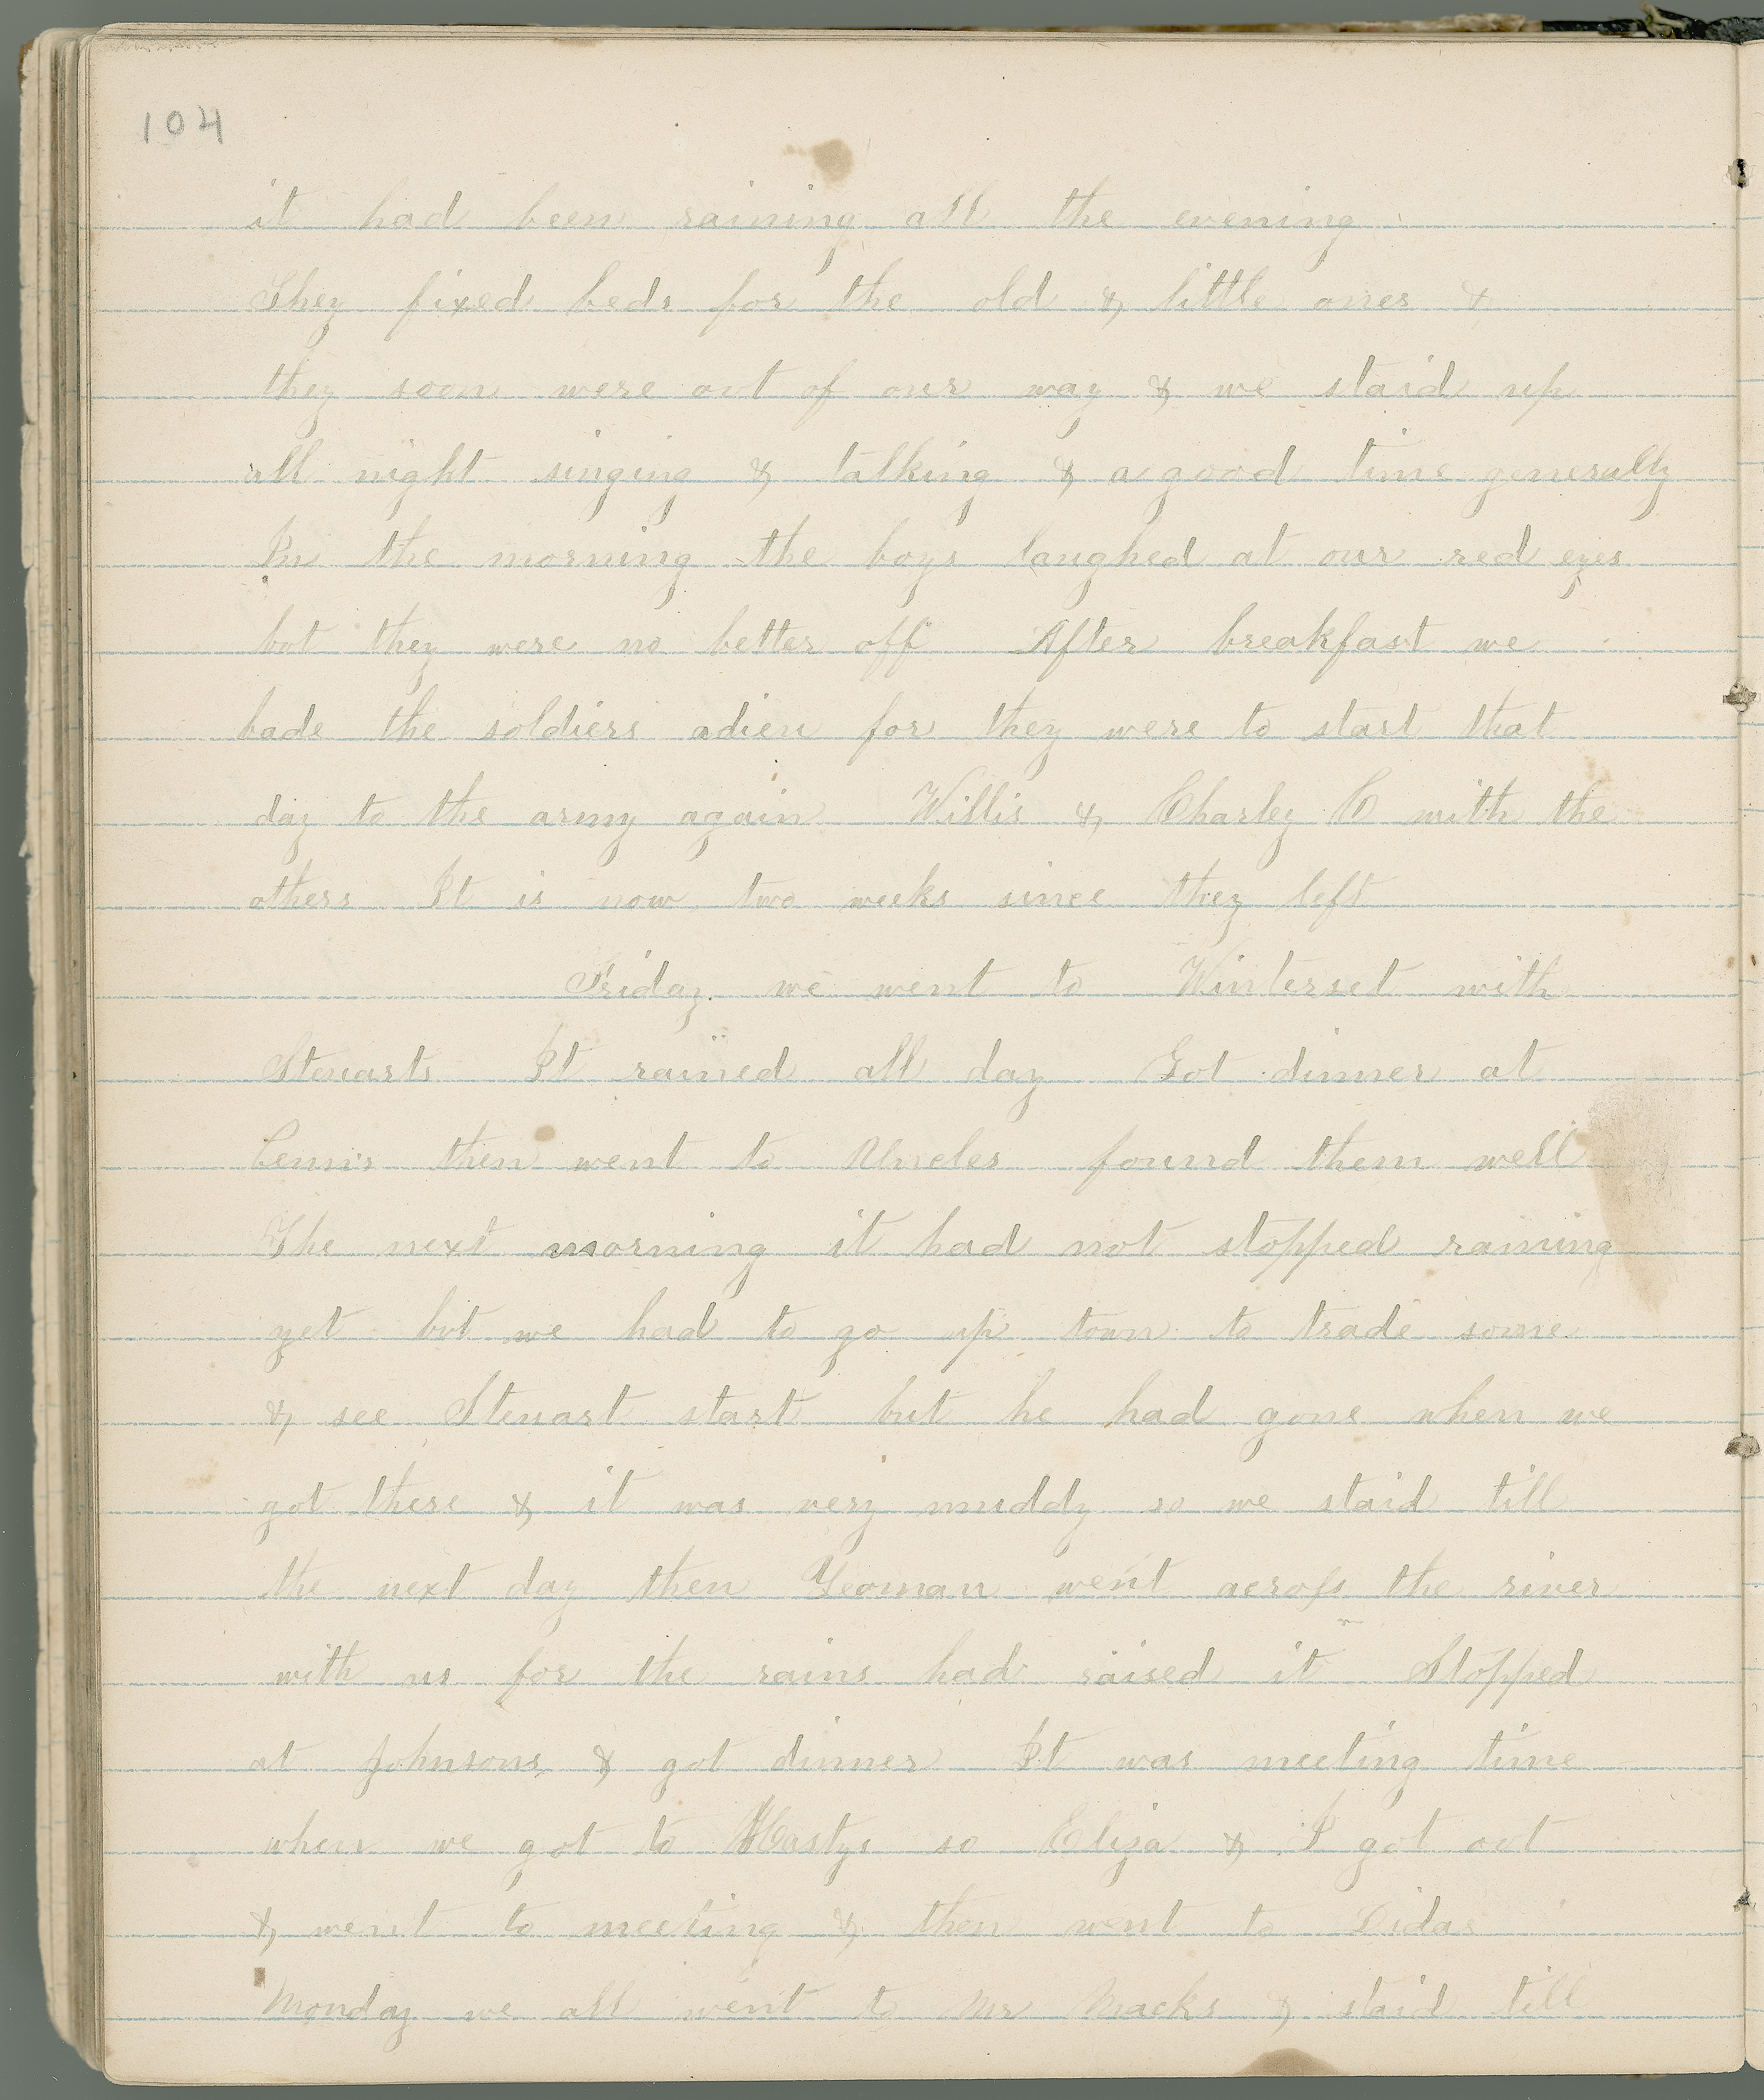 104
it had been raining all the evening
They fixed beds for the old & little ones &
they soon were out of our way & we staid up
all night singing & talking & a good time generally
In the morning the boys laughed at our red eyes
but they were no better off After breakfast we
bade the soldiers adieu for they were to start that
day to the army again Willis & Charley C with the
others It is now two weeks since they left
Friday we went to Winterset with
Steuarts It rained all day Got dinner at
then went to Uncles found them well
The next morning it had not stopped raining
yet but we had to go up town to trade some
& see Steuart start but he had gone when we
got there & it was very muddy so we staid till
the next day then Yeoman went across the river
with us for the rains had raised it Stopped
at Johnsons & got dinner It was meeting time
when we got to Hastys so Eliza & I got out
& went to meeting & then went to Lidas
Monday we all went to Mr Macks & staid till